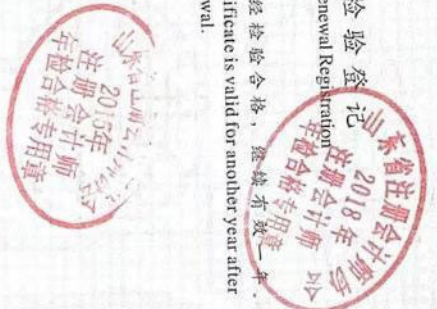 检验登记
Renewal Registration
经检验合格，继续有效一年。
ificate is valid for another year after
wal.
山东省注册会计师协会
2018年
注册会计师
年检合格专用章
2015年
注册会计师
年检合格专用章